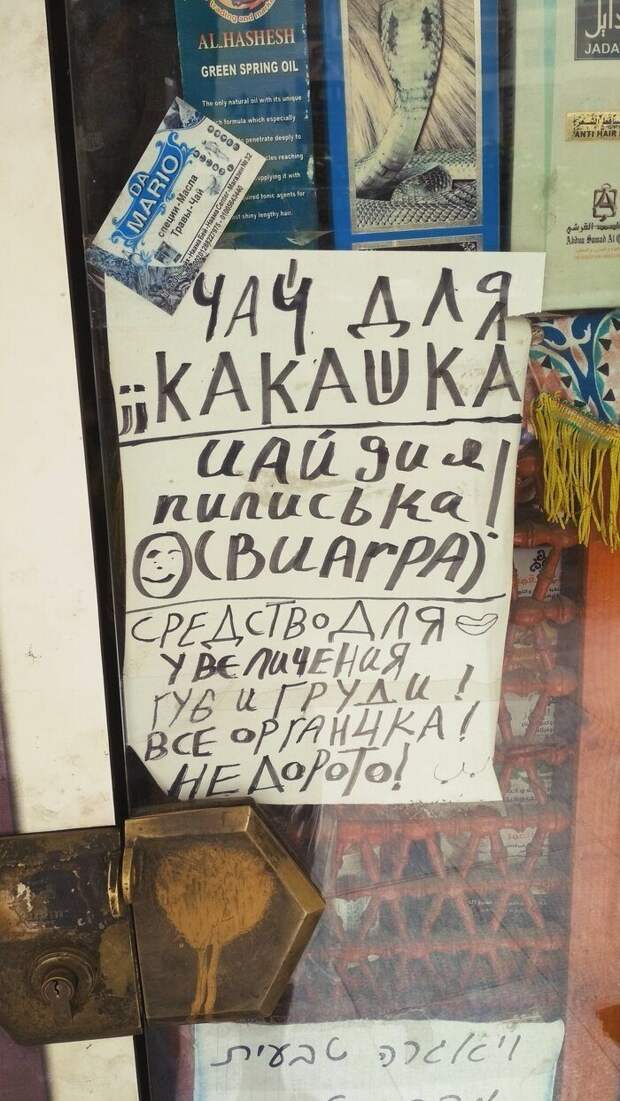 trading and mark
AL.HASHESH
GREEN SPRING OIL
The only natural oil with its unique
rich formula which especially
penetrate deeply to
reaching
supplying it with
agents for
shiny lengthy hair.
DA
MARIO
специи-Масла
Травы-Чай
JADA
ANTI HAIR
القرشي
Abdua Samad Al Q
ЧАЙ ДЛЯ
¡¡КАКАШКА
ЦАЙ ДИЯ
пиписька!
(ВИАГРА)
СРЕДСТВО ДЛЯ
УВЕЛИЧЕНИЯ
ГУБ И ГРУДИ!
ВСЕ ОРГАНЦКА!
НЕДОРОГО!
ויאגרה טבעית